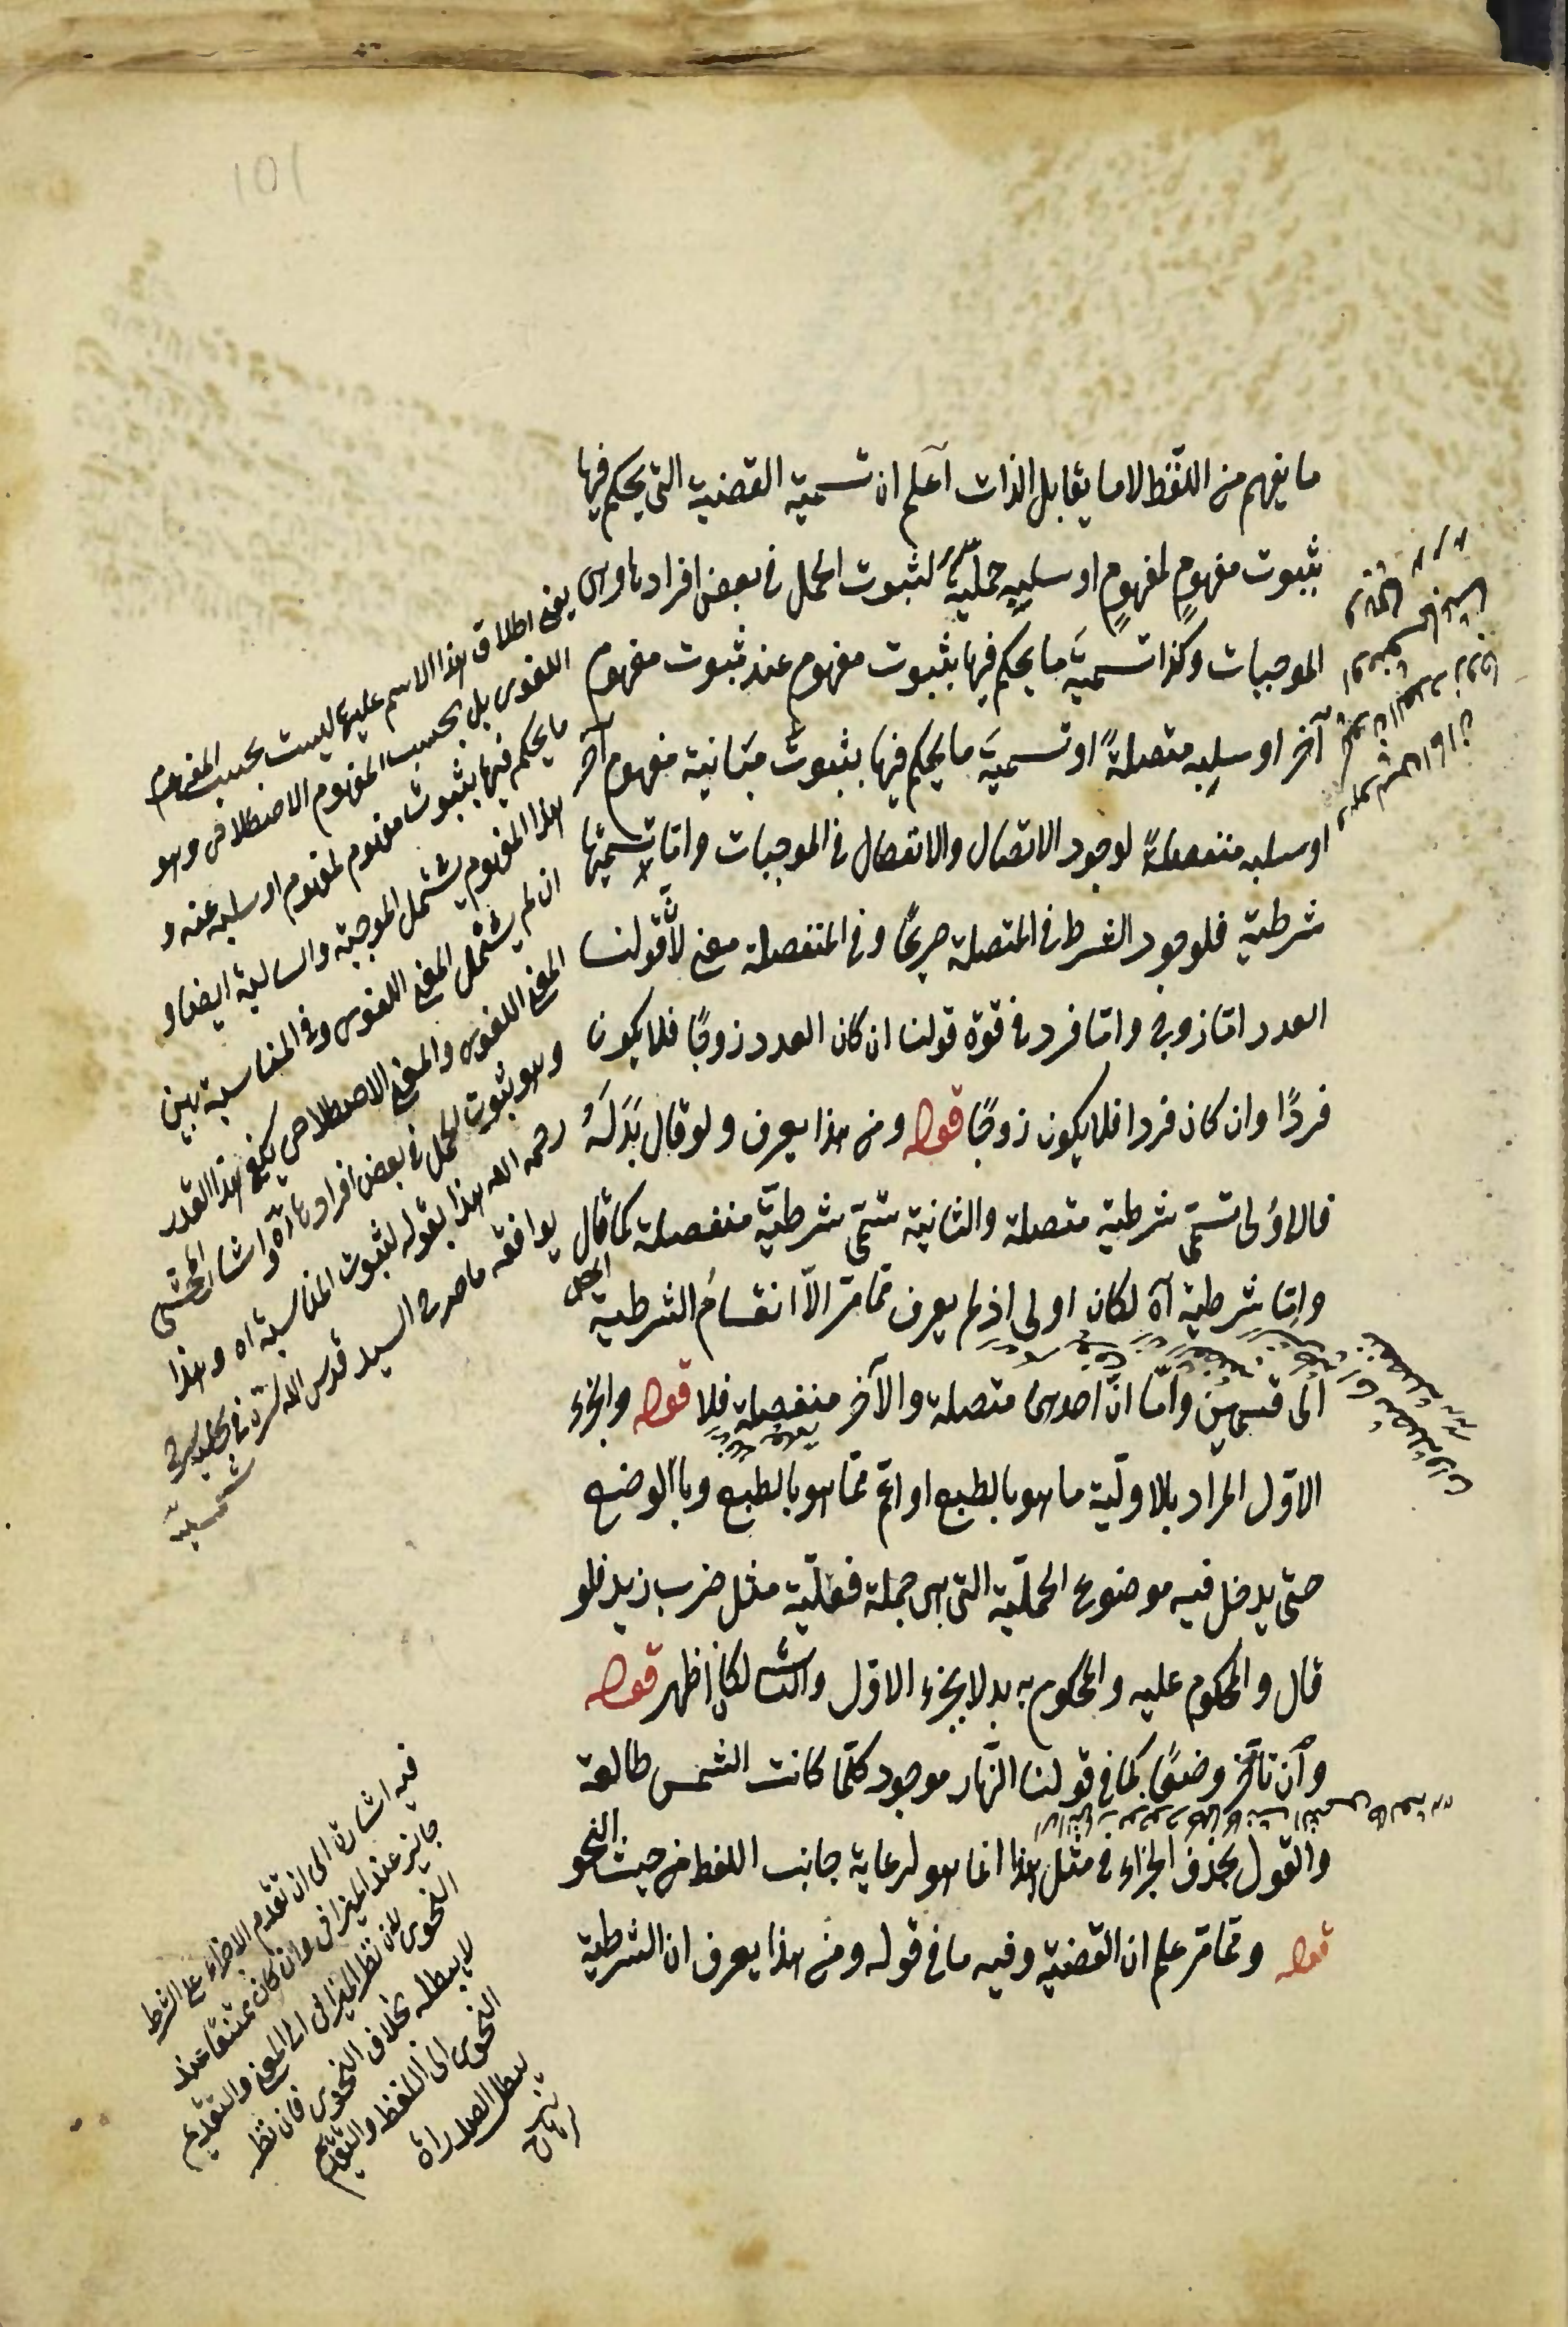 101
ما يفهم من اللفظ لا ما يقابل الذات اعلم ان تسمية القضية التى يحكم فيها
بثبوت مفهومٍ لمفهومٍ او سلبِه حمليةً لثبوت الحمل فى بعض افرادها وهى
الموجبات وكذا تسميةَ ما يحكم فيها بثبوت مفهوم عند ثبوت مفهوم
آخر او سلبِه متصلةً او تسميةَ ما يحكم فيها بثبوت مباينة مفهوم آخر
او سلبه منفصلةً لوجود الاتصال والانفصال فى الموجبات واما تسميتها
شرطية فلوجود الشرط فى المتصلة صريحًا وفى المنفصلة معنى لانّ قولنا
العدد امّا زوج وامّا فرد فى قوّة قولنا ان كان العدد زوجًا فلا يكون
فردًا وان كان فردا فلا يكون زوجًا قوله ومن هذا يعرف ولو قال بَدَلَهُ
فالاولى تسمّى شرطية متصلة والثانية تسمّى شرطيّة منفصلة كما قال
وامّا شرطية آه لكان اولى اذ لم يعرف ممّا مرّ الّا انقسامُ الشرطية
الى قسمين وامّا انّ احدهما متصلة والآخر منفصلة فلا قوله والجزء
الاوّل المراد بالاوليّة ما هو بالطبع او اعمّ ممّا هو بالطبع وبالوضع
حتى يدخل فيه موضوع الحمليّة التى هى جملة فعليّة مثل ضرب زيد فلو
قال والمحكوم عليه والمحكوم به بدلا بجزء الاوّل والثانى لكان اظهر قوله
وان تأخّر وضعًا كما فى قولنا النّهار موجود كلّما كانت الشمس طالعة
والقول بحذف الجزاء فى مثل هذا انما هو لرعاية جانب اللفظ من حيث النحو
قوله وممّا مرّ علم ان القضية وفيه ما فى قوله ومن هذا يعرف ان الشرطية
يعنى اطلاق هذا الاسم عليها ليست بحسب المفهوم
اللغوى بل بحسب المفهوم الاصطلاحى وهو
ما يحكم فيها بثبوت مفهوم لمفهوم او سلبه عنه و
هذا المفهوم يشتمل الموجبة والسالبة ايضا و
ان لم يشتمل المعنى اللغوى وفى المناسبة بين
المعنى اللغوى والمعنى الاصطلاحى يكفى هذا القدر
وهو ثبوت الحمل فى بعض افرادها آه واشار المحشى
رحمه الله هذا بقوله لثبوت المناسبة آه وهذا
يوافقه ما صرح السيد قدس الله سره فى
شمسية
فيه اشارة الى ان تقدم الجزاء على الشرط
جايز عند الميزانى وان كان ممتنعًا عند
النحوى لان نظر الميزانى الى المعنى والتقديم
لا يبطله بخلاف النحوى فان نظر
النحوى الى اللفظ والتقديم
يبطل الصدارة